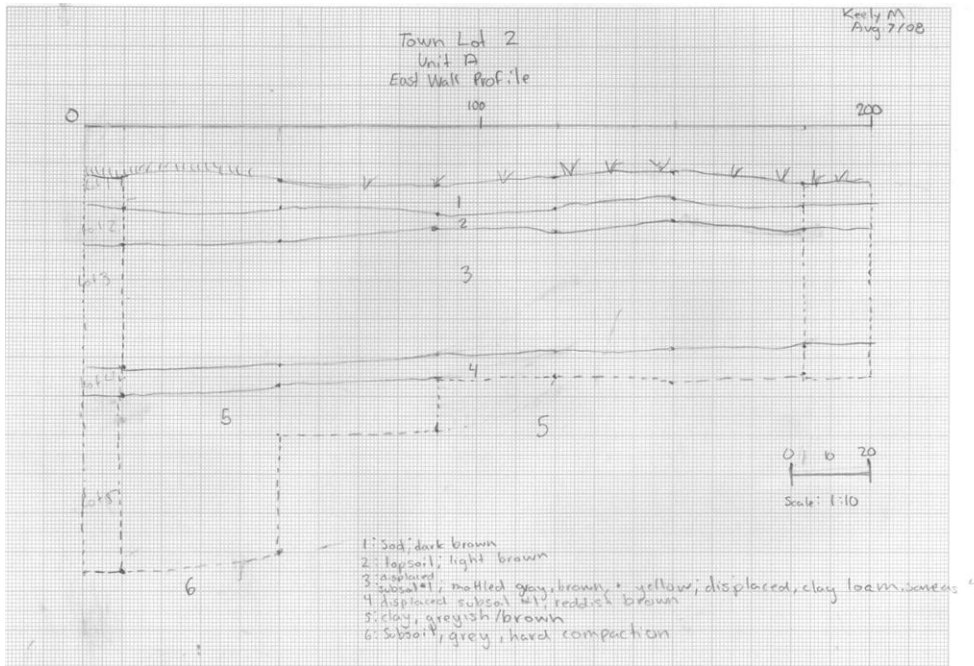 Keely M
Aug 7/08
Town Lot 2
Unit A
East Wall Profile
0 100 200
1
lot 2
2
lot 3
3
4
5
5
lot 5
6
0 10 20
Scale: 1:10
1: Sod; dark brown
2: topsoil; light brown
3: displaced subsoil #1; mottled gray, brown, + yellow; displaced, clay loam.
4 displaced subsoil #1; reddish brown
5: clay, greyish/brown
6: Subsoil, grey, hard compaction